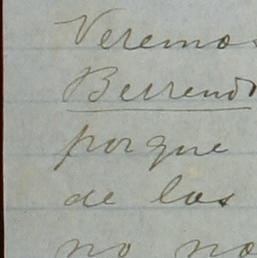 Veremos
Berrendo
porque
de los
no no